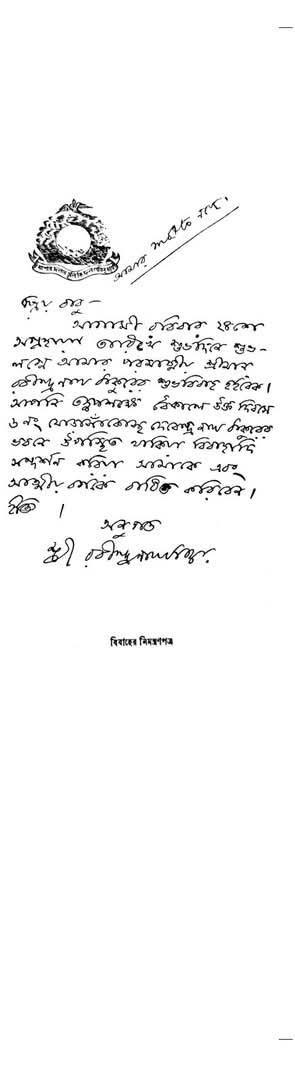 আমার motto নহে।
প্রিয় বাবু —
আগামী রবিবার ২৪শে
অগ্রহায়ণ তারিখে শুভদিনে শুভ-
লগ্নে আমার পরমাত্মীয় শ্রীমান
রবীন্দ্রনাথ ঠাকুরের শুভবিবাহ হইবেক।
আপনি তদুপলক্ষে বৈকালে উক্ত দিবসে
৬ নং যোড়াসাঁকোস্থ দেবেন্দ্রনাথ ঠাকুরের
ভবনে উপস্থিত থাকিয়া বিবাহাদি
সন্দর্শন করিয়া আমাকে এবং
আত্মীয়বর্গকে বাধিত করিবেন।
ইতি ।
অনুগত
শ্রী রবীন্দ্রনাথ ঠাকুর
বিবাহের নিমন্ত্রণপত্র